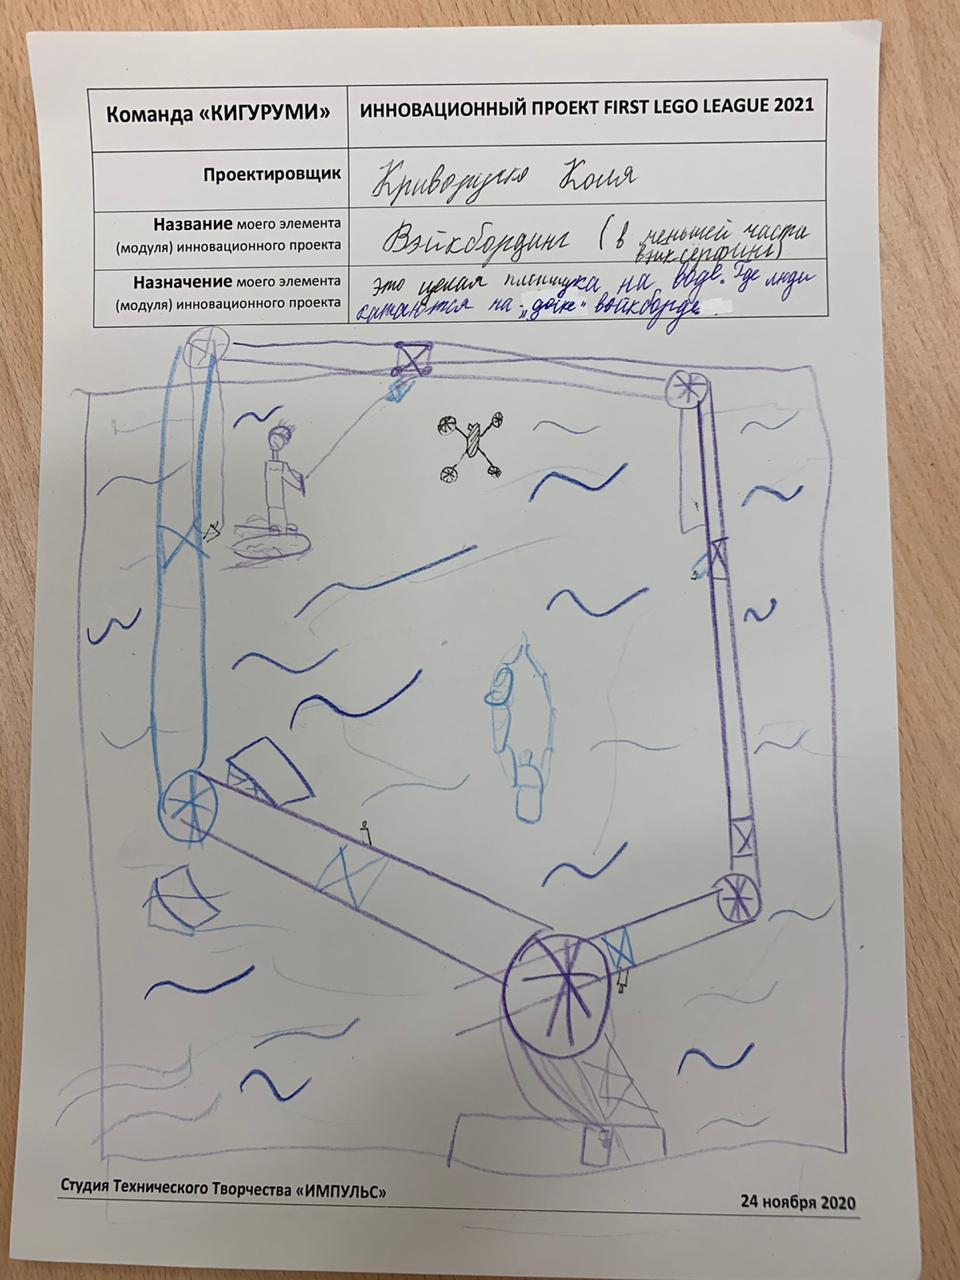 Команда «КИГУРУМИ»
ИННОВАЦИОННЫЙ ПРОЕКТ FIRST LEGO LEAGUE 2021
Проектировщик
Коля
Название моего элемента
(модуля) инновационного проекта
Вэйкбординг (в меньшей части
вэйксёрфинг)
Назначение моего элемента
(модуля) инновационного проекта
это целая на воде. Где люди
катаются на „доске“
Студия Технического Творчества «ИМПУЛЬС»
24 ноября 2020